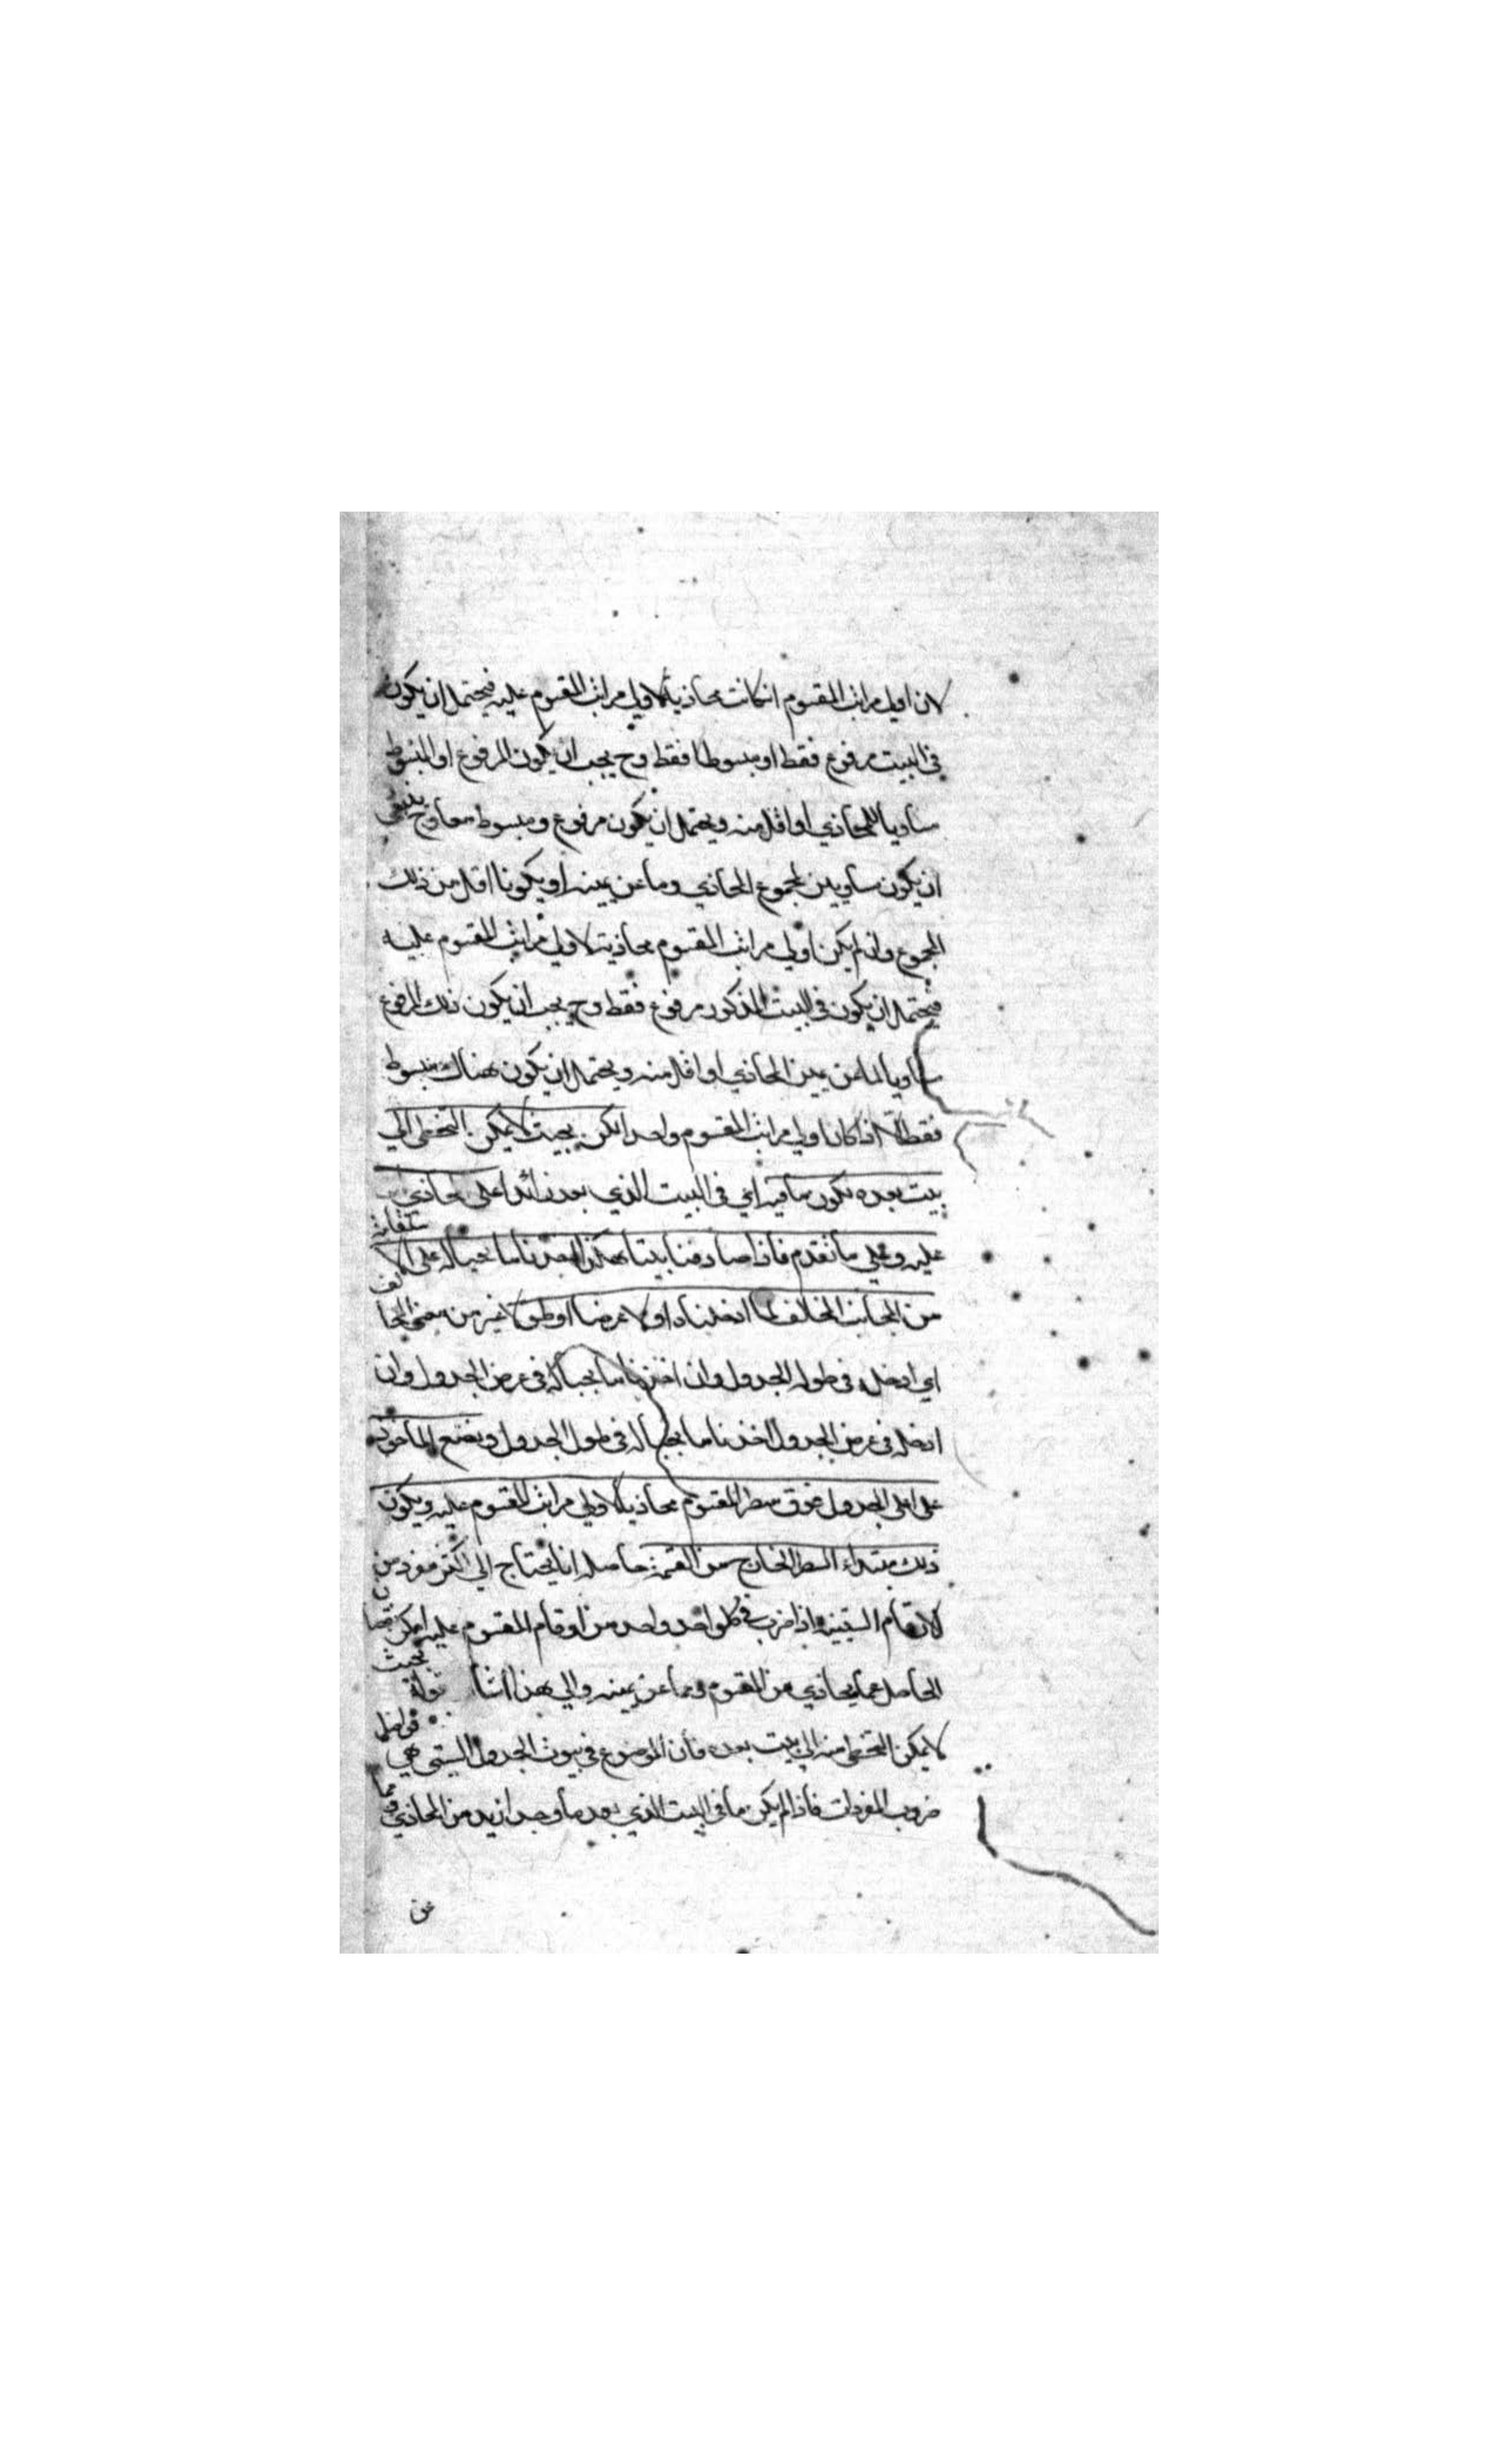 لان اولي مراتب المقسوم ان كانت محاذية لاولي مراتب المقسوم عليه فيحتمل ان يكون
في البيت مرفوع فقط او مبسوطا فقط وح يجب ان يكون المرفوع او المبسوط
مساويا للمحاذي او اقل منه ويحتمل ان يكون مرفوع ومبسوط معا وح ينبغي
ان يكون مساويين لمجموع المحاذي وما عن يمينه او يكونا اقل من ذلك
المجموع وان لم يكن اولي مراتب المقسوم محاذية لاولي مراتب المقسوم عليه
فيحتمل ان يكون في البيت المذكور مرفوع فقط وح يجب ان يكون ذلك المرفوع
مساويا لما عن يمين المحاذي او اقل منه ويحتمل ان يكون هناك مبسوط
فقط الا اذا كان اولي مراتب المقسوم واحدا لكن بحيث لا يمكن التخطي الي
بيت بعده يكون ما فيه اي في البيت الذي بعد زائدا علي محاذي
عليه وعلي ما تقدم فاذا صادفنا بيتا هكذا اخذنا ما بحياله علي الاستقامة
من الجانب المخالف لما ادخلناه اولا عرضا او طولا غير من معني المخالف
اي ادخله في طول الجدول وان اخذنا ما بحياله في عرض الجدول وان
ادخله في عرض الجدول اخذنا ما بحياله في طول الجدول ويضع المأخوذ
علي اعلي الجدول فوق سطر المقسوم محاذيا لاولي مراتب المقسوم عليه ويكون
ذلك مبتداء السطر الخارج من القسمة حاصله انا يحتاج الي اكثر مفرد من
الارقام الستينية اذا ضرب في كل واحد واحد من ارقام المقسوم عليه امكن نقصان
الحاصل عما يحاذي من المقسوم ومما عن يمينه والي هذا اشار بقوله بحيث
لا يمكن التخطي منه الي بيت بعده فان الموضوع في بيوت الجدول الستيني هي
ضروب المفردات فاذا لم يكن ما في البيت الذي بعد ما وجد ازيد من المحاذي ومما
عن